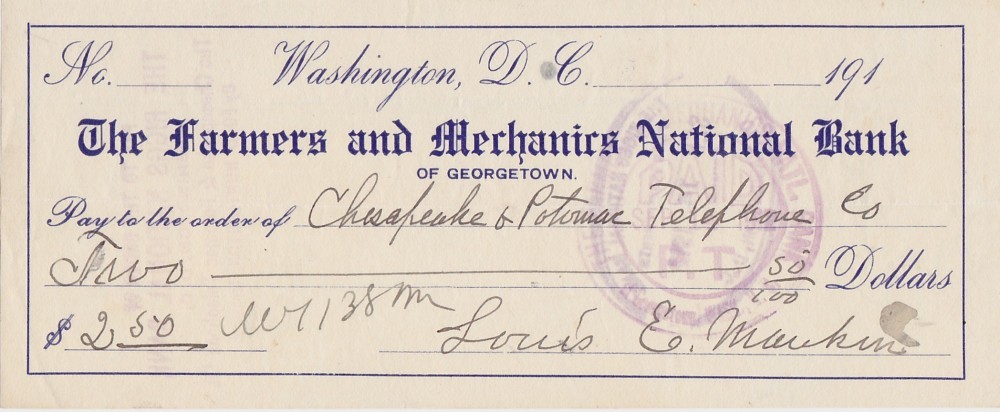 No. Washington, D. C. 191
The Farmers and Mechanics National Bank
OF GEORGETOWN.
Pay to the order of Chesapeake & Potomac Telephone Co
Two 50/100 Dollars
$ 2 50 Louis E. Mankin